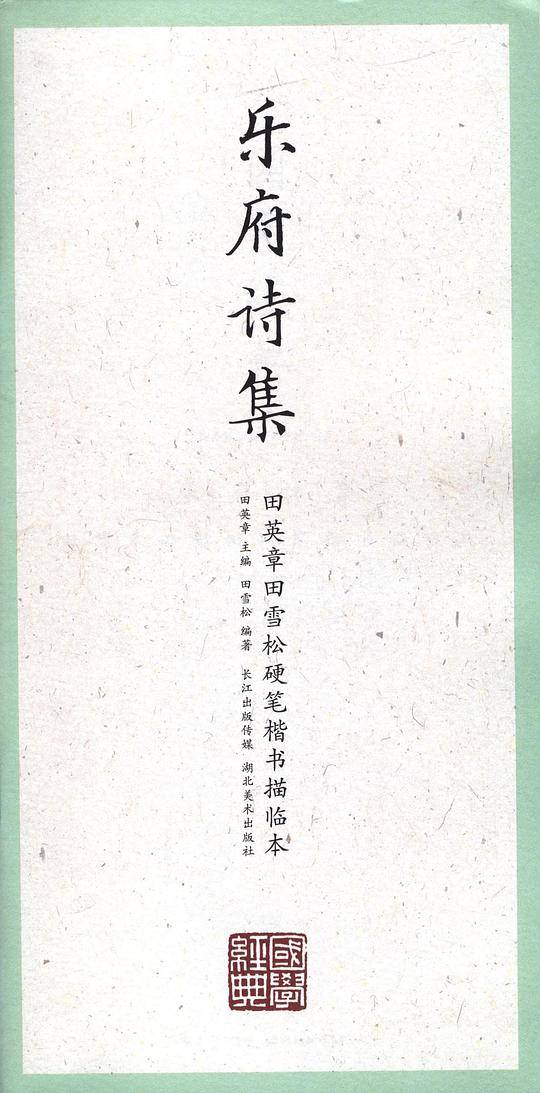 乐府诗集
田英章田雪松硬笔楷书描临本
田英章 主编 田雪松 编著 长江出版传媒 湖北美术出版社
國學
經典